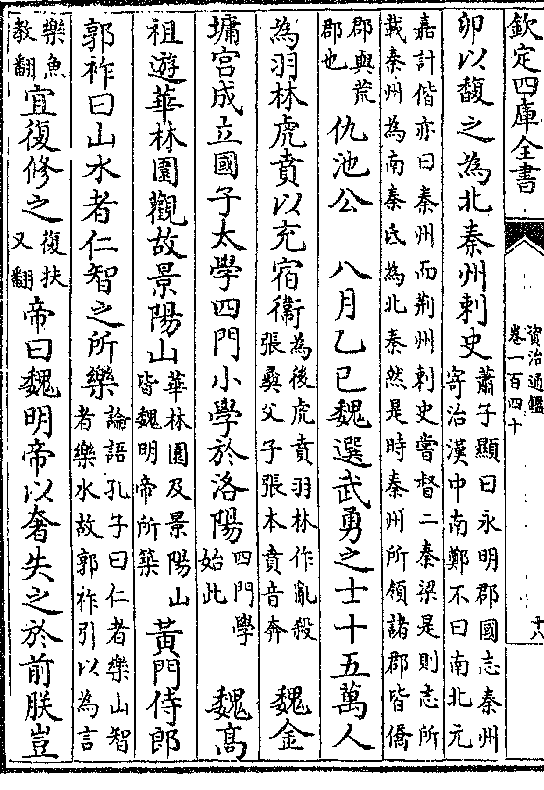 欽定四庫全書
資治通鑑
卷一百四十
十八
卯以馥之為北秦州刺史蕭子顯曰永明郡國志秦州寄治漢中南鄭不曰南北元
嘉計偕亦曰秦州而荆州刺史嘗督二秦梁是則志所載秦州為南秦氐為北秦然是時秦州所領諸郡皆僑
郡與荒郡也仇池公 八月乙巳魏選武勇之士十五萬人
為羽林虎賁以充宿衞為後虎賁羽林作亂殺張彛父子張本賁音奔 魏金
墉宮成立國子太學四門小學於洛陽四門學始此 魏髙
祖遊華林園觀故景陽山華林園及景陽山皆魏明帝所築黃門侍郎
郭祚曰山水者仁智之所樂論語孔子曰仁者樂山智者樂水故郭祚引以為言
樂魚教翻宜復修之復扶又翻帝曰魏明帝以奢失之於前朕豈